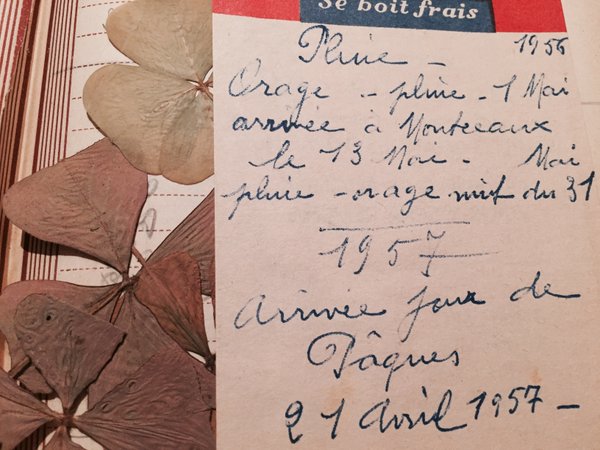 Se boit frais
1956
Pluie -
Orage - pluie - 1 Mai
arrivée à Montceaux
le 13 Mai - Mai
pluie - orage nuit du 31
1957
Arrivée jour de
Pâques
21 Avril 1957 -